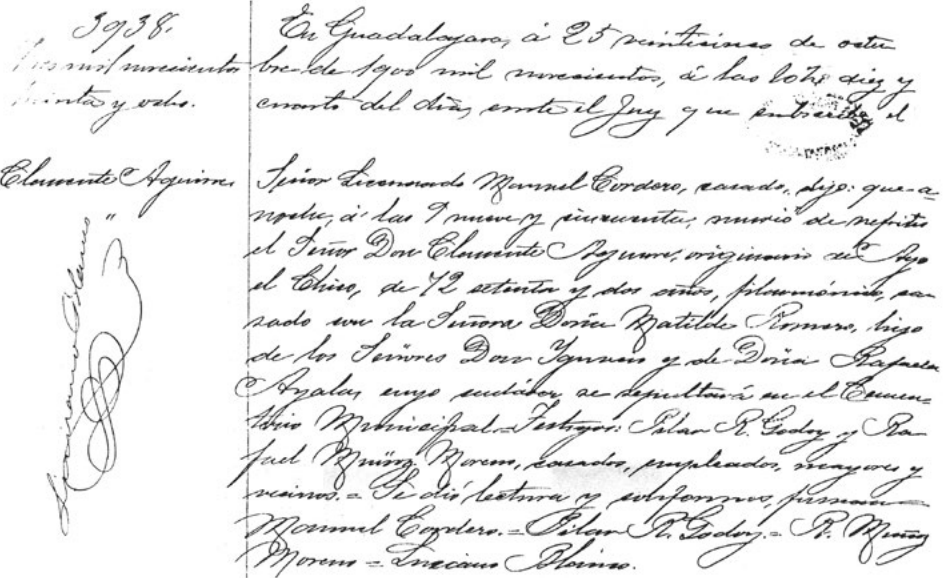 3938.
Tres mil novecientos
treinta y ocho.
Clemente Aguirre
En Guadalajara, á 25 veinticinco de octu
bre de 1900 mil novecientos, á las 10¼ diez y
cuarto del día, ante el Juez que subscribe el
Señor Licenciado Manuel Cordero, casado, dijo: que a-
noche, á las 9 nueve y cincuenta, murió de nefritis
el Señor Don Clemente Aguirre, originario de Ayo
el Chico, de 72 setenta y dos años, filarmónico, ca-
sado con la Señora Doña Matilde Romero, hijo
de los Señores Don Ignacio y de Doña Rafaela
Ayala, cuyo cadáver se sepultará en el Cemen-
terio Municipal = Testigos: Pilar R. Godoy y Ra-
fael Muñoz Moreno, casados, empleados, mayores y
vecinos. = Se dió lectura y conformes, firmaron
Manuel Cordero. = Pilar R. Godoy. = R. Muñoz
Moreno = Luciano Blanco.
Luciano Blanco